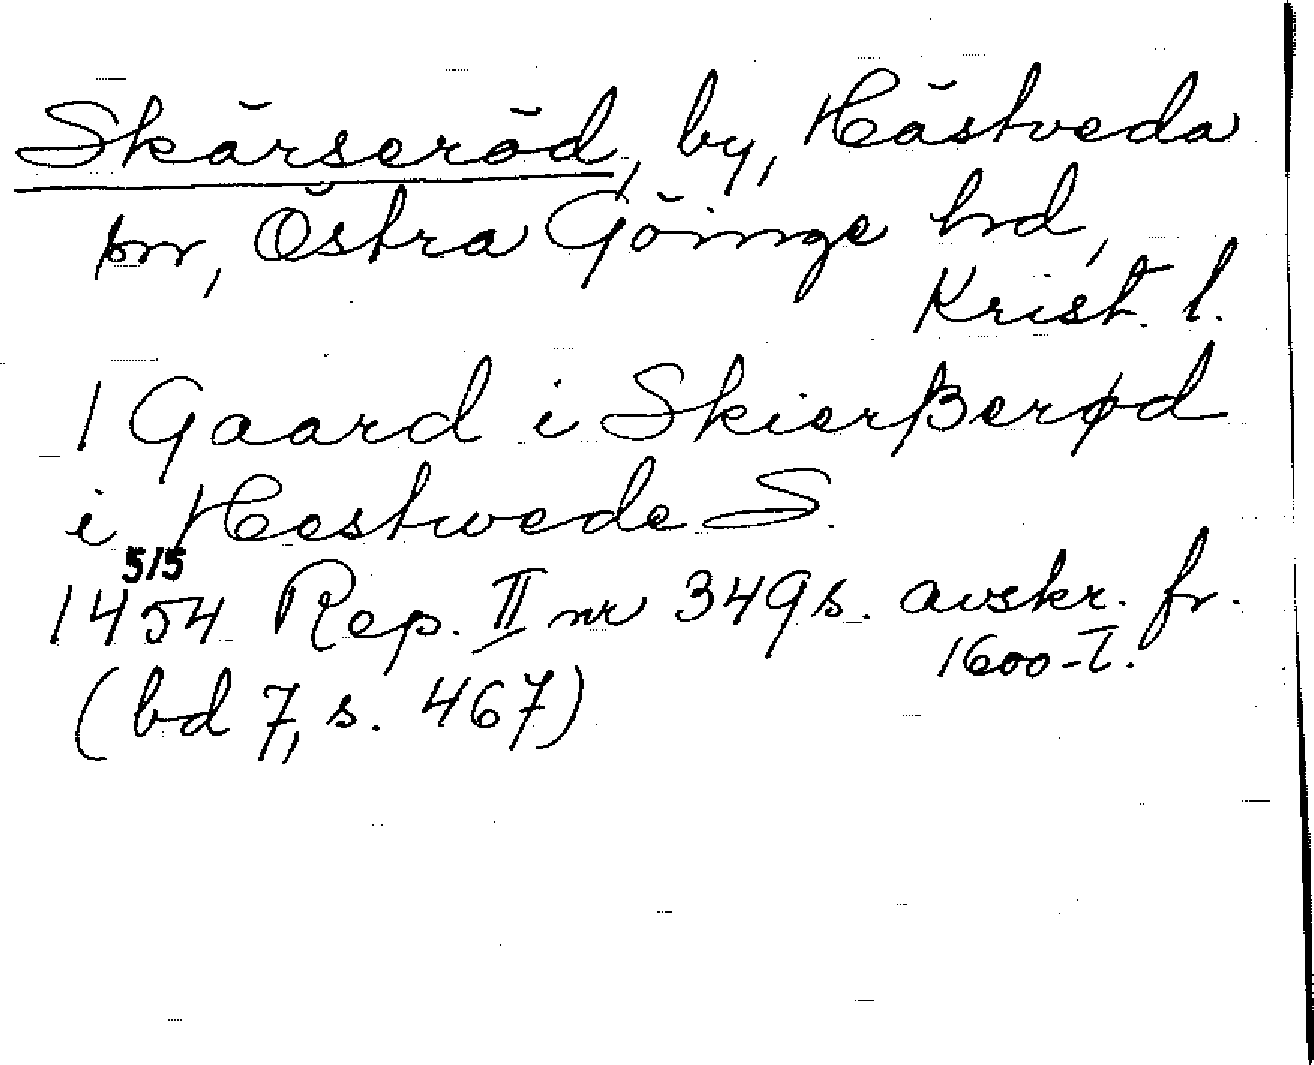 Skärseröd, by, Hästveda
sn, Östra Göinge hd,
Krist. l.
1 Gaard i Skierßerød
i Hestwede S.
5/5
1454 Rep. II nr 349 s. avskr. fr.
1600-T.
(bd 7, s. 467)